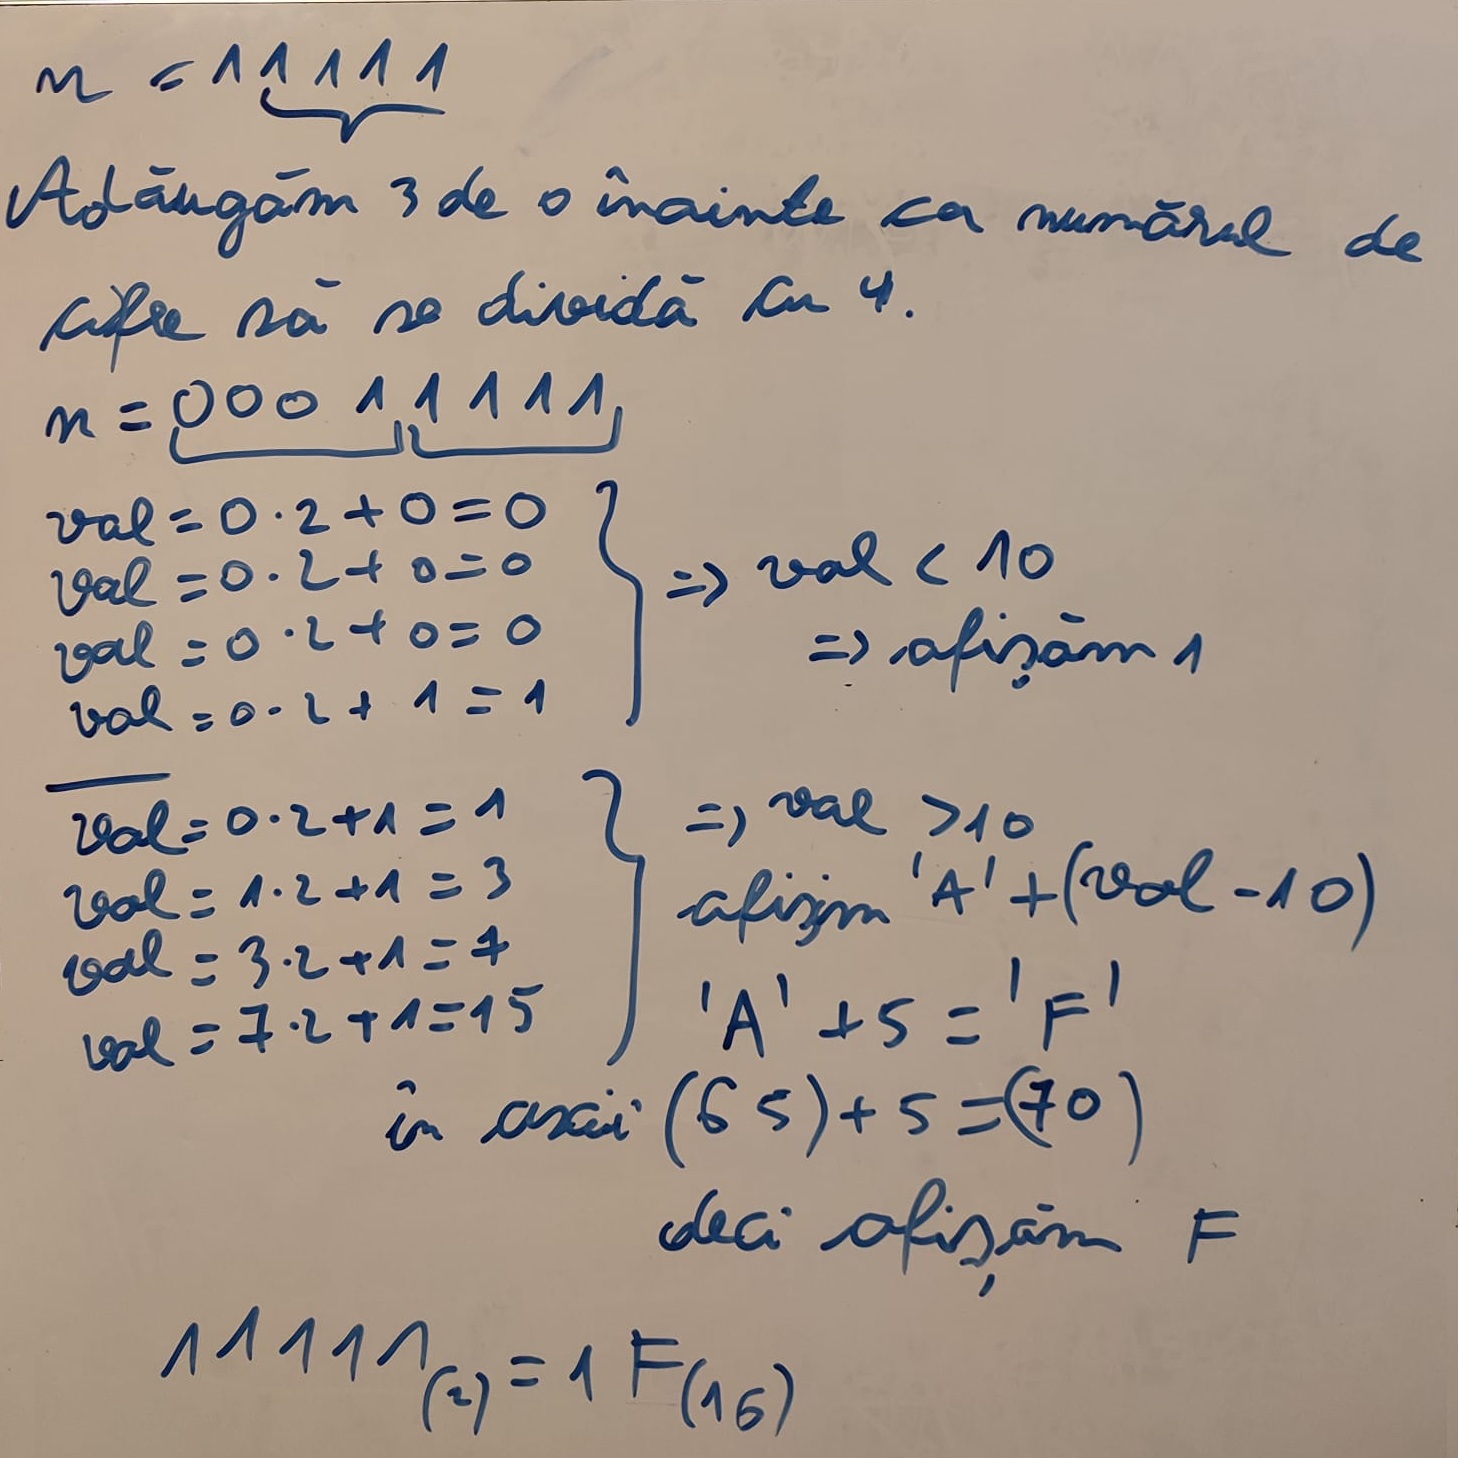 n = 11111
Adăugăm 3 de 0 înainte ca numărul de
cifre să se dividă cu 4.
n = 000 1 1111
val = 0·2+0=0
val = 0·2+0=0
val = 0·2+0=0
val = 0·2+1=1
=> val < 10
=> afișăm 1
val = 0·2+1=1
val = 1·2+1=3
val = 3·2+1=7
val = 7·2+1=15
=> val >10
afișăm 'A' + (val -10)
'A' +5 = 'F'
în ascii (65)+5=(70)
deci afișăm F
11111(2) = 1F(16)